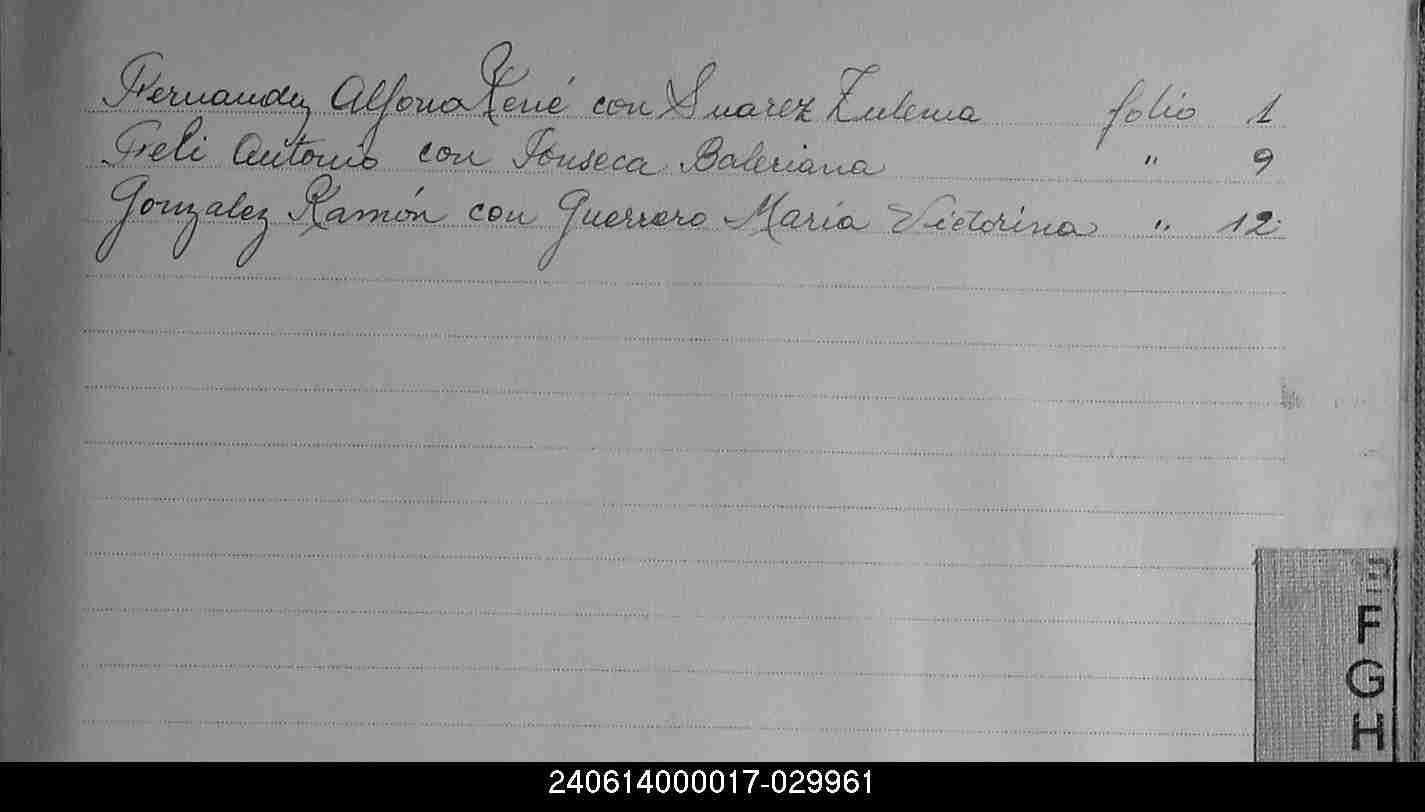 Fernandez Alfonso René con Suarez Zulema folio 1
Feli Antonio con Fonseca Baleriana " 9
Gonzalez Ramón con Guerrero María Victorina " 12
F
G
H
240614000017-029961